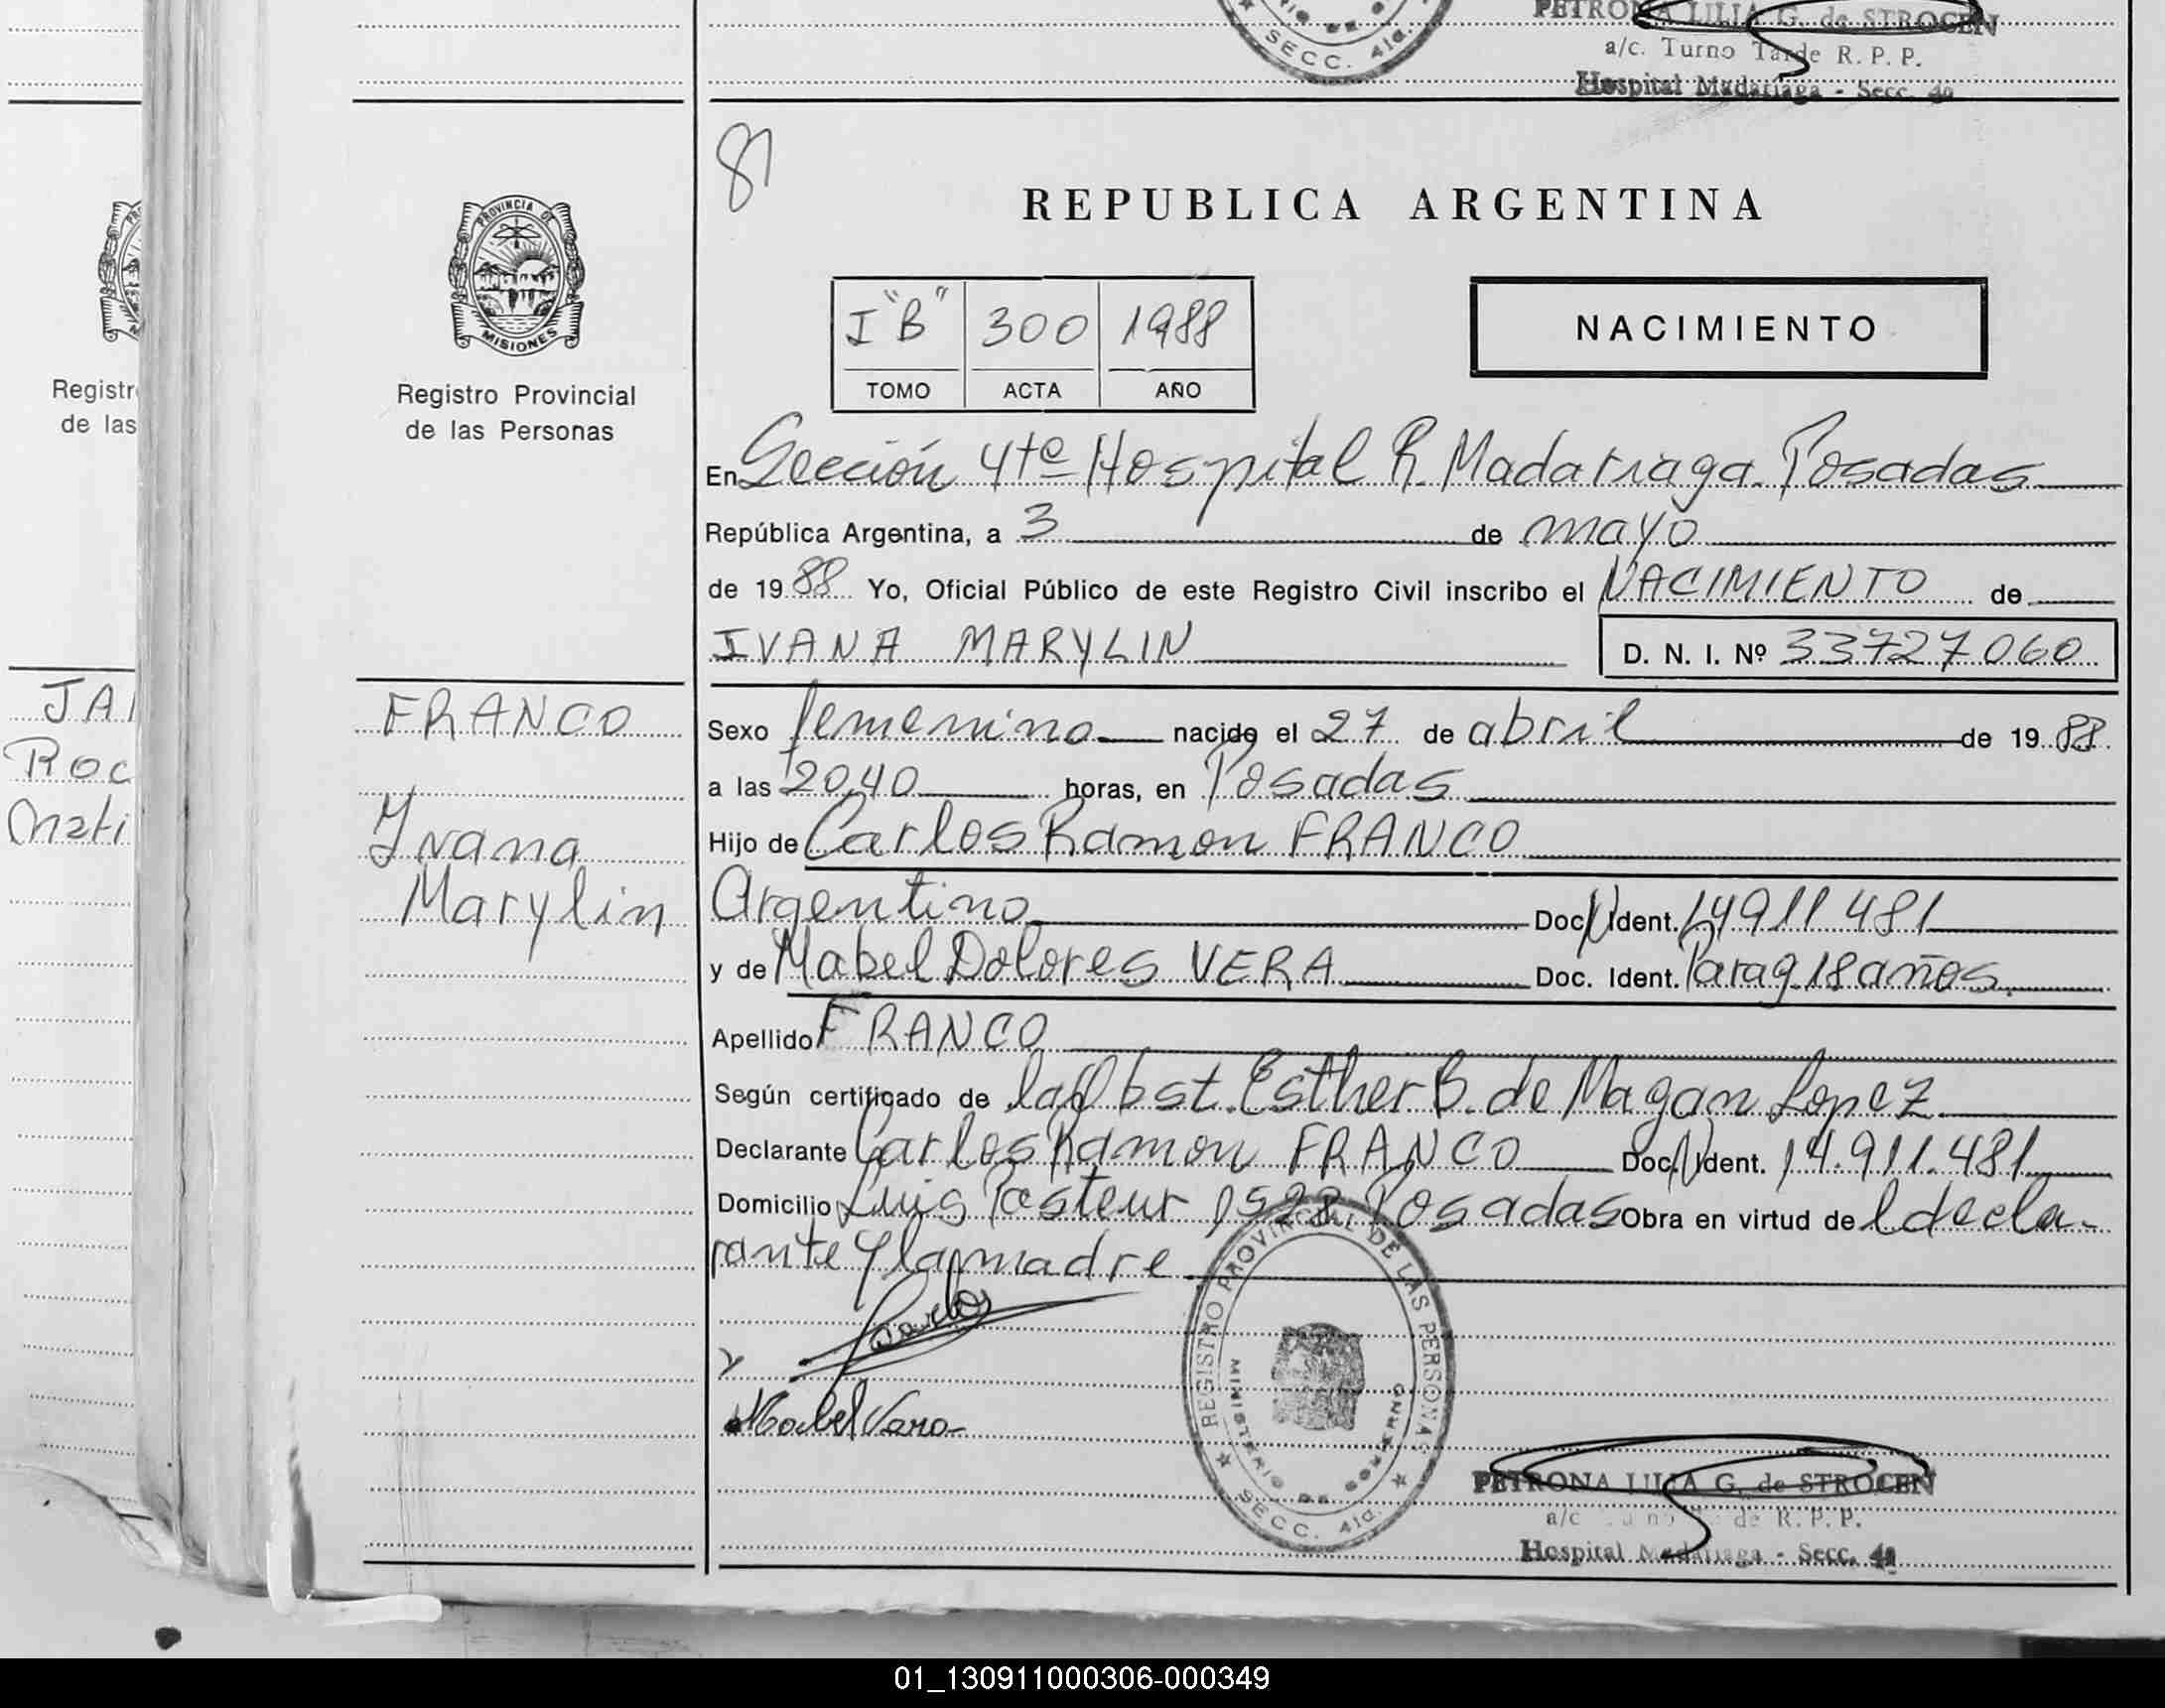 PETRONA LILIA G. de STROCEN
a/c. Turno Tarde R. P. P.
Hospital Madariaga - Secc. 4a
SECC. 4ta.
81
REPUBLICA ARGENTINA
PROVINCIA DE
MISIONES
Registro Provincial
de las Personas
I "B" 300 1988
TOMO ACTA AÑO
NACIMIENTO
En Sección 4ta Hospital R. Madariaga. Posadas
República Argentina, a 3 de mayo
de 1988 Yo, Oficial Público de este Registro Civil inscribo el NACIMIENTO de
IVANA MARYLIN
D. N. I. Nº 33727060
FRANCO
Ivana
Marylin
Sexo femenino nacido el 27 de abril de 1988
a las 20,40 horas, en Posadas
Hijo de Carlos Ramon FRANCO
Argentino Doc. N Ident. 14911481
y de Mabel Dolores VERA Doc. Ident. Parag. 18 años.
Apellido FRANCO
Según certificado de la Obst. Esther B. de Magan Lopez
Declarante Carlos Ramon FRANCO Doc. N Ident. 14.911.481
Domicilio Luis Pasteur 1528. Posadas Obra en virtud de l decla-
rante y la madre.
Carlos
Mabel Vera
REGISTRO PROVINCIAL DE LAS PERSONAS
MINISTERIO DE GOBIERNO
SECC. 4ta.
PETRONA LILIA G. de STROCEN
a/c Turno de R. P. P.
Hospital Madariaga - Secc. 4a
Registr
de las
JA
Roc
Mati
01_130911000306-000349